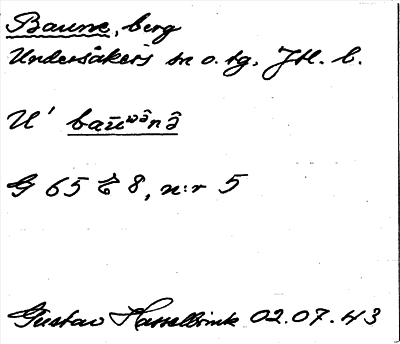 Baune, berg
Undersåkers sn o. tg, Jtl. l.
U' baūʷə̂nə̂
G 65 8, n:r 5
Gustav Hasselbrink 02.07.43